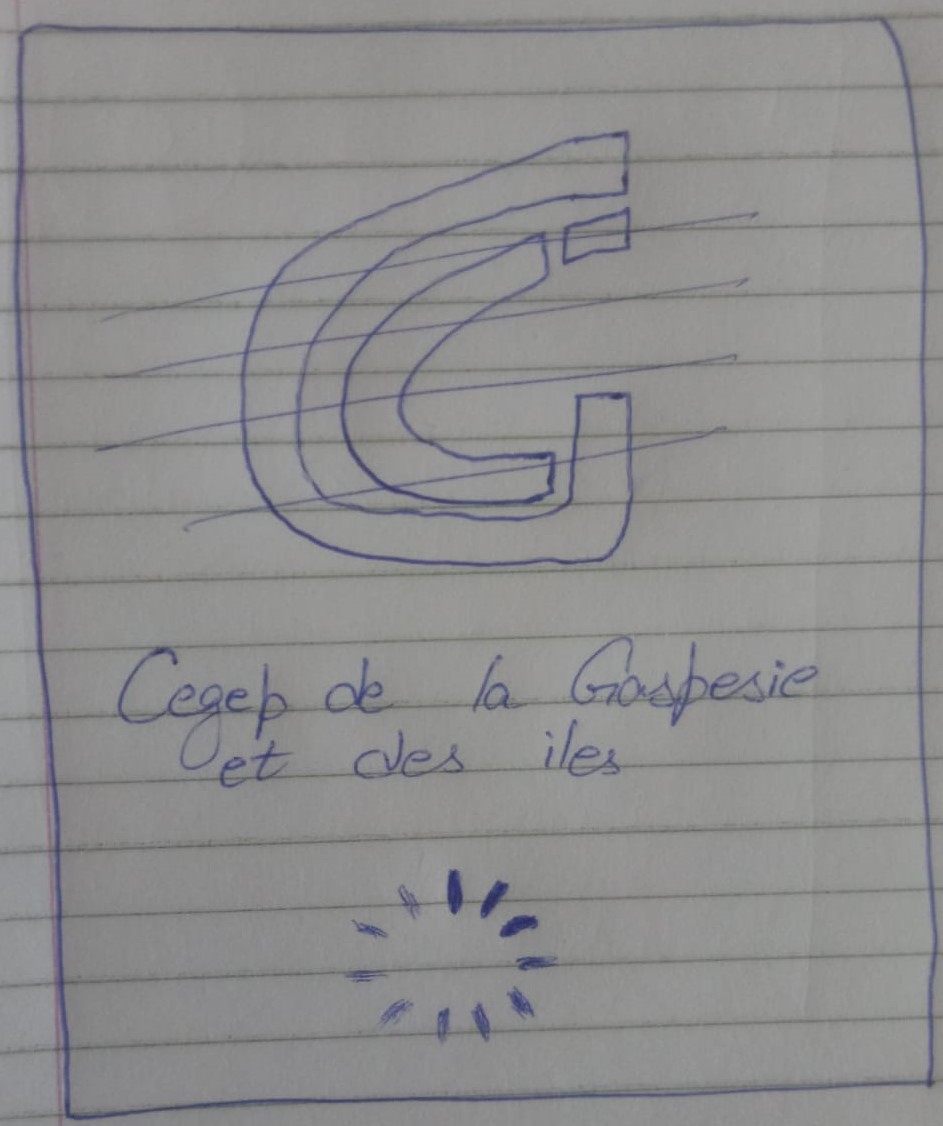 G
Cegep de la Gaspesie
et des iles